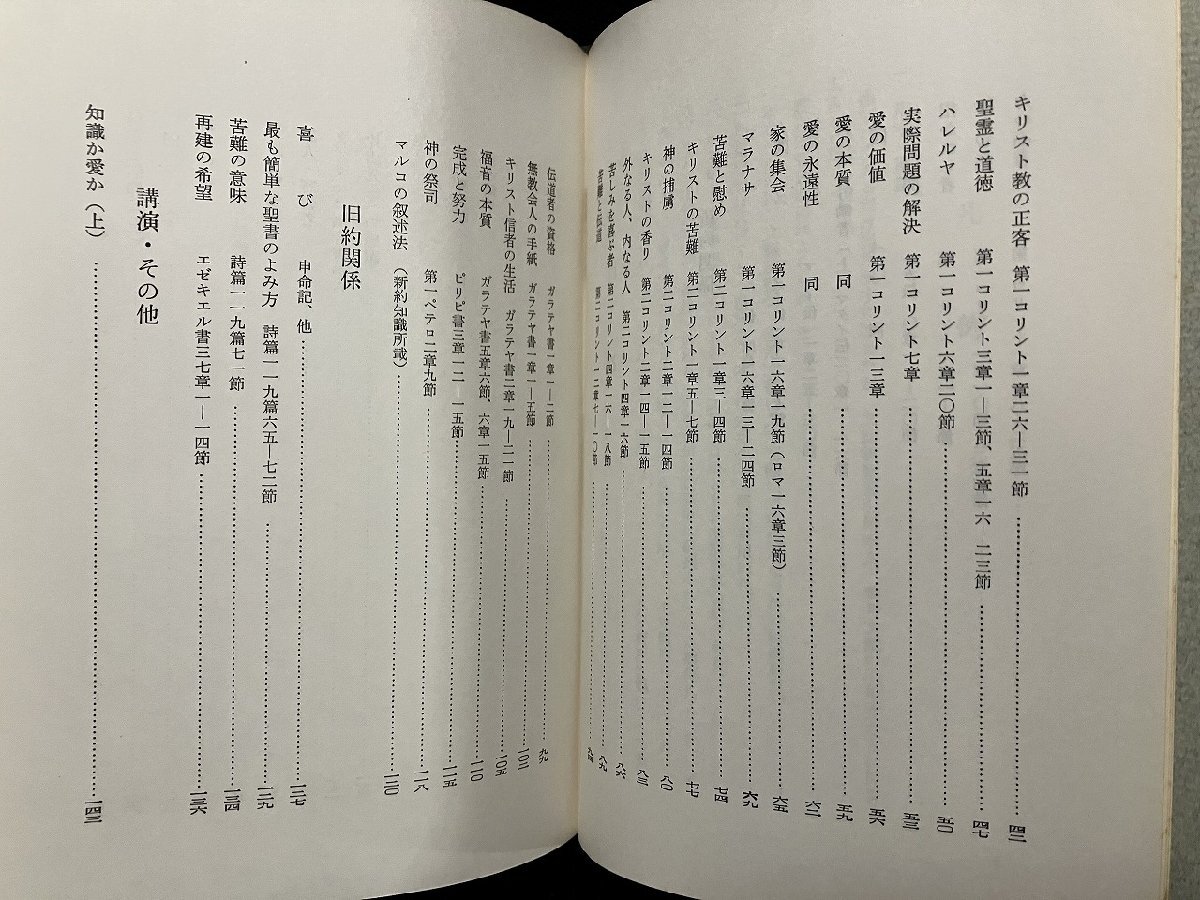 キリスト教の正客 第一コリント一章二六―三一節 四二
聖霊と道徳 第一コリント三章一―三節、五章一六 二三節 四七
ハレルヤ 第一コリント六章二〇節 五〇
実際問題の解決 第一コリント七章 五三
愛の価値 第一コリント一三章 五六
愛の本質 同 五九
愛の永遠性 同 六二
家の集会 第一コリント一六章一九節(ロマ一六章三節) 六五
マラナサ 第一コリント一六章一三―二四節 六九
苦難と慰め 第二コリント一章三―四節 七四
キリストの苦難 第二コリント一章五―七節 七七
神の捕虜 第二コリント二章一二―一四節 八〇
キリストの香り 第二コリント二章一四―一五節 八三
外なる人、内なる人 第二コリント四章一六節 八六
苦しみを喜ぶ者 第二コリント四章一六―一八節 八九
苦難と伝道 第二コリント一二章七―一〇節 九四
伝道者の資格 ガラテヤ書一章一―二節 九九
無教会人の手紙 ガラテヤ書一章一―五節 一〇二
キリスト信者の生活 ガラテヤ書二章一九―二一節 一〇五
福音の本質 ガラテヤ書五章六節、六章一五節 一一〇
完成と努力 ピリピ書三章一二―一五節 一一五
神の祭司 第一ペテロ二章九節 一一八
マルコの叙述法 (新約知識所載) 一二〇
旧約関係
喜び 申命記、他 一二七
最も簡単な聖書のよみ方 詩篇一一九篇六五―七二節 一二九
苦難の意味 詩篇一一九篇七一節 一三四
再建の希望 エゼキエル書三七章一―一四節 一三六
講演・その他
知識か愛か(上) 一四二